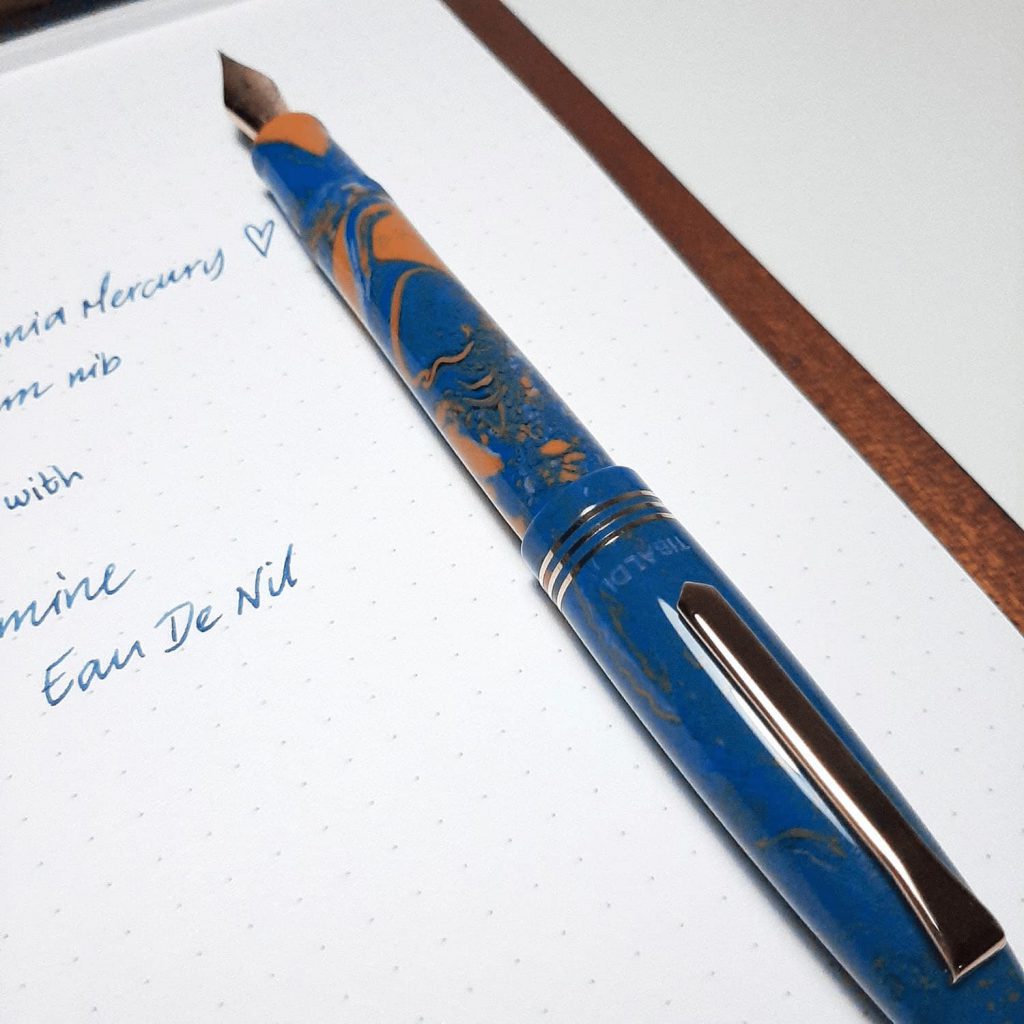 nia Mercury ♡
m nib
with
mine
Eau De Nil
TIBALDI